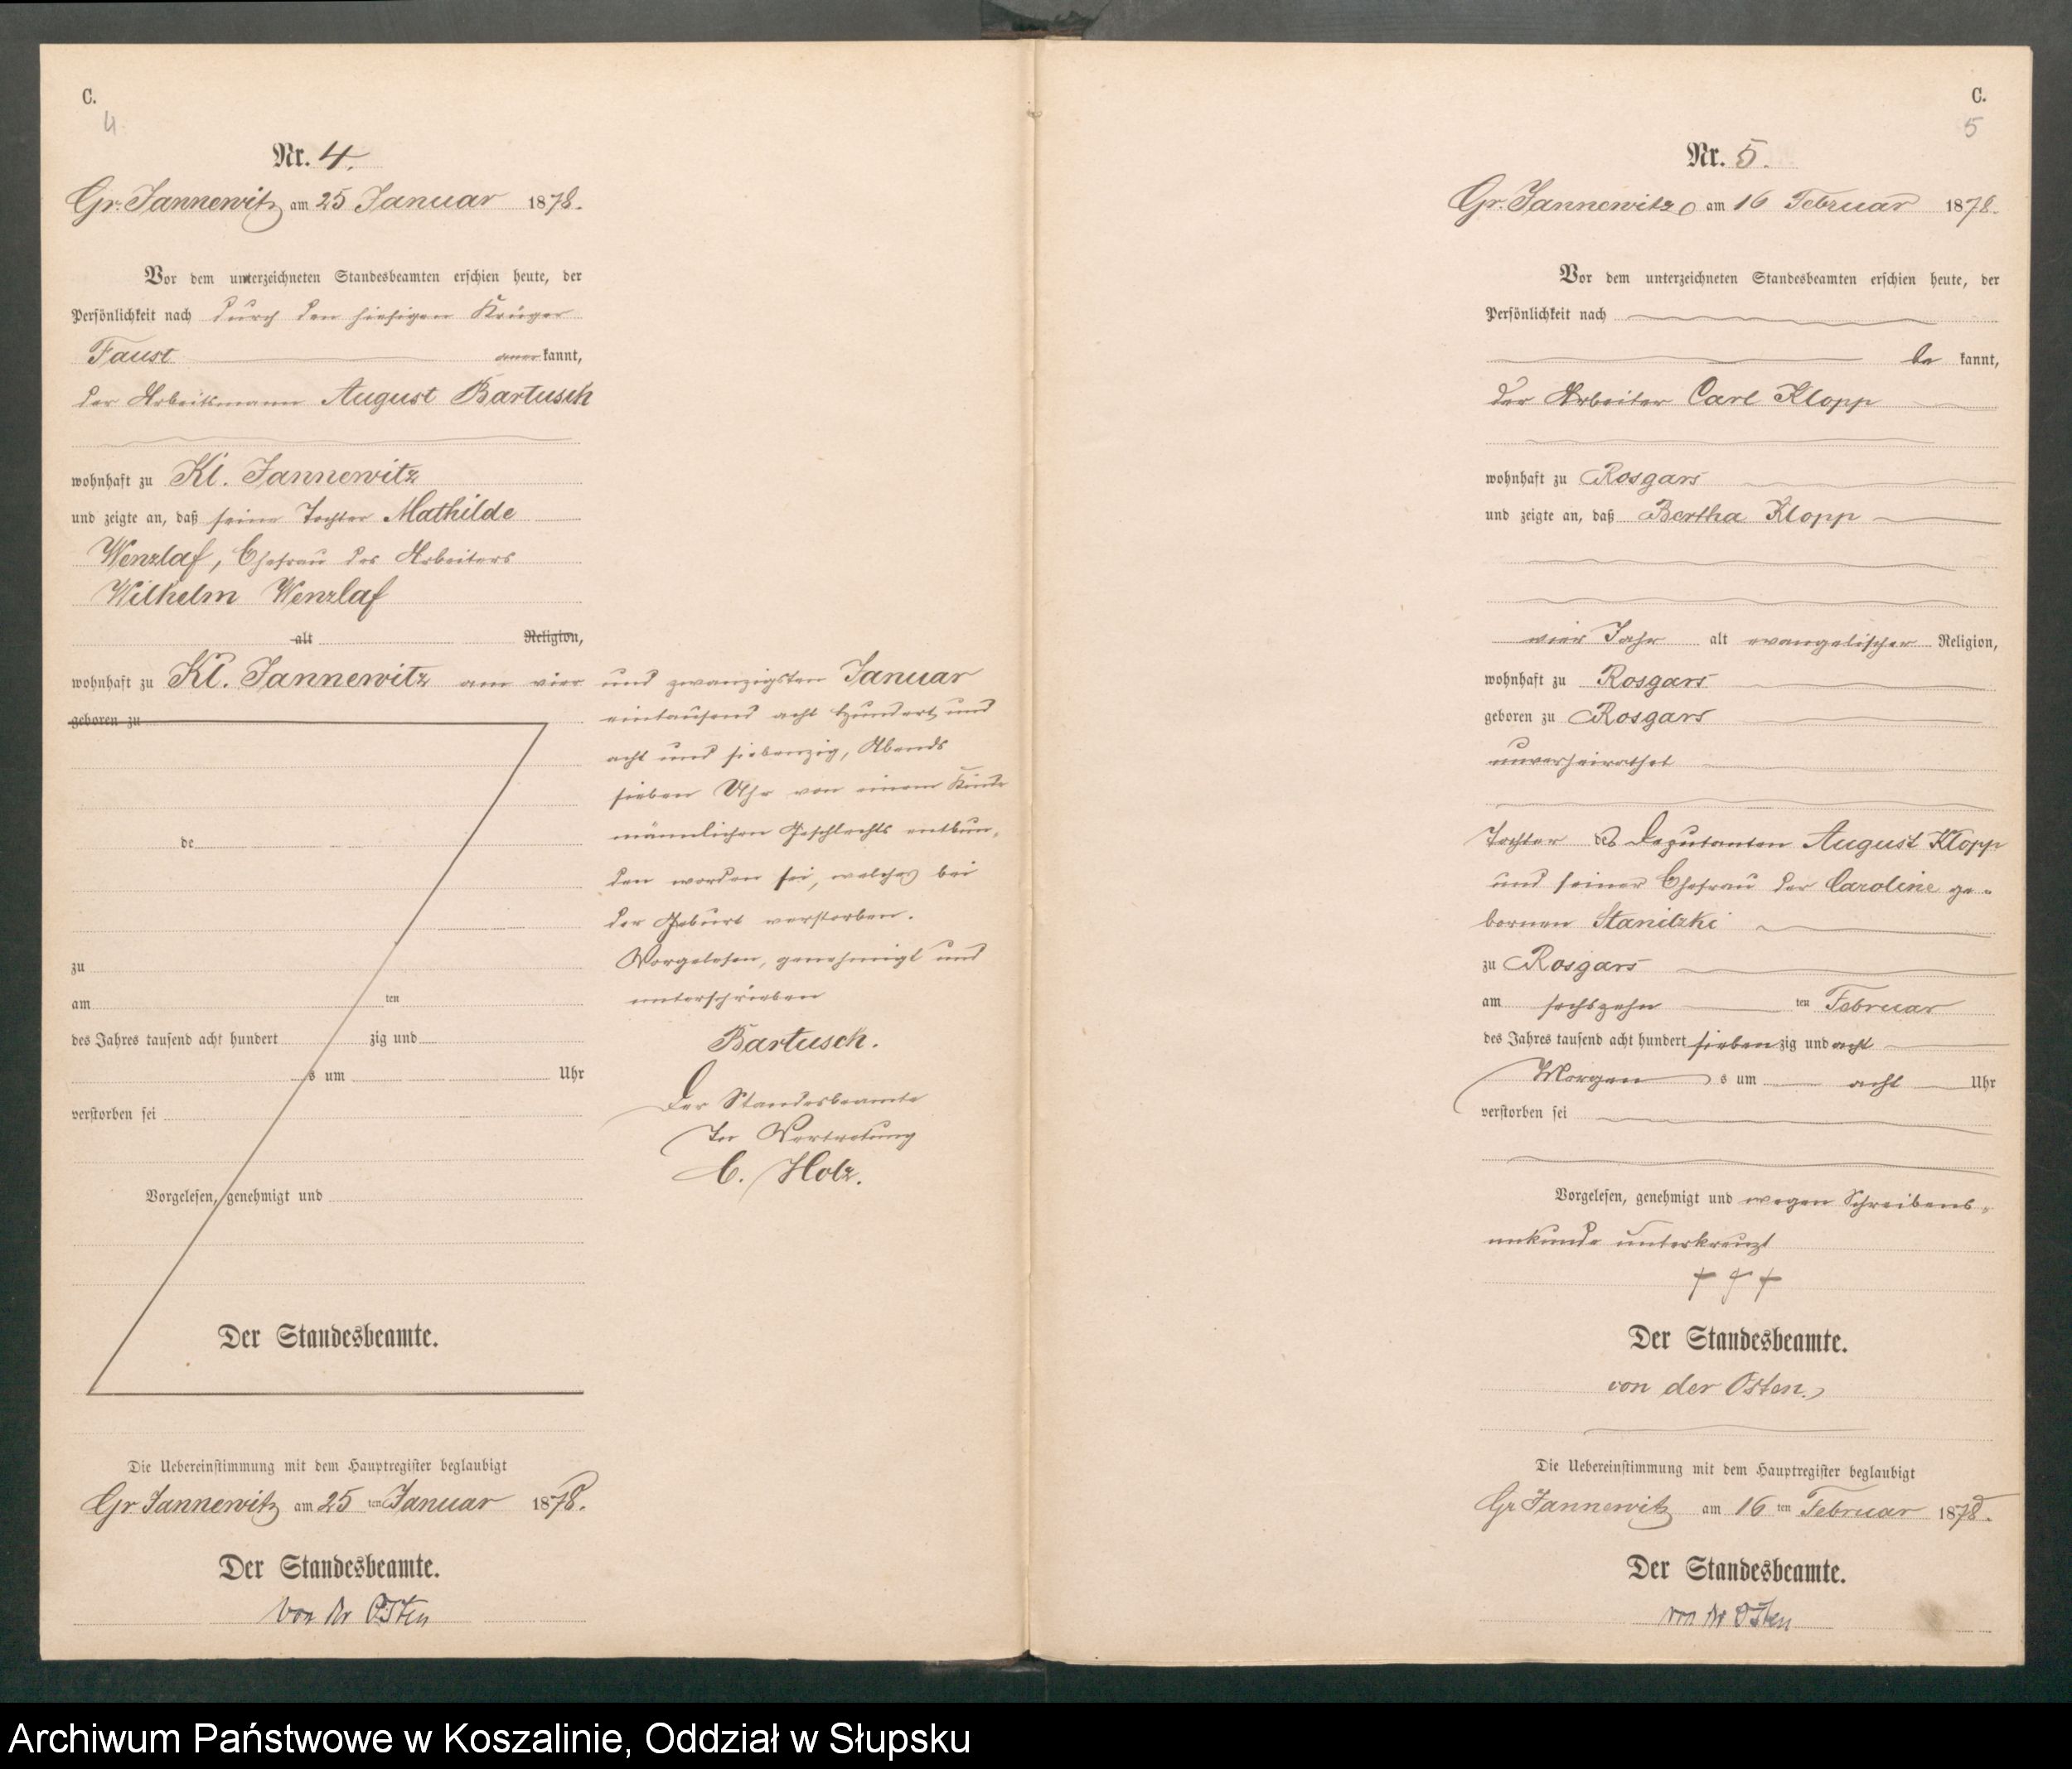 C.
4
Nr. 4.
Gr. Jannewitz am 25 Januar 1878.
Vor dem unterzeichneten Standesbeamten erschien heute, der
Persönlichkeit nach durch den hiesigen Krüger
Faust kannt,
der Arbeitsmann August Bartusch
wohnhaft zu Kl. Jannewitz
und zeigte an, daß seine Tochter Mathilde
Wenzlaf, Ehefrau des Arbeiters
Wilhelm Wenzlaf
alt Religion,
wohnhaft zu Kl. Jannewitz am vier
geboren zu
de
zu
am ten
des Jahres tausend acht hundert zig und
s um Uhr
verstorben sei
Vorgelesen, genehmigt und
Der Standesbeamte.
Die Uebereinstimmung mit dem Hauptregister beglaubigt
Gr Jannewitz am 25 ten Januar 1878.
Der Standesbeamte.
von der Osten
und zwanzigsten Januar
eintausend acht hundert und
acht und siebenzig, Abends
sieben Uhr von einem Kinde
männlichen Geschlechts entbun-
den worden sei, welches bei
der Geburt verstorben.
Vorgelesen, genehmigt und
unterschrieben
Bartusch.
Der Standesbeamte
In Vertretung
C. Holz.
C.
5
Nr. 5.
Gr. Jannewitz am 16 Februar 1878.
Vor dem unterzeichneten Standesbeamten erschien heute, der
Persönlichkeit nach
be kannt,
der Arbeiter Carl Klopp
wohnhaft zu Rosgars
und zeigte an, daß Bertha Klopp
vier Jahr alt evangelischer Religion,
wohnhaft zu Rosgars
geboren zu Rosgars
unverheirathet
Tochter des Deputanten August Klopp
und seiner Ehefrau der Caroline ge-
bornen Stanitzki
zu Rosgars
am sechszehn ten Februar
des Jahres tausend acht hundert sieben zig und acht
Morgen s um acht Uhr
verstorben sei
Vorgelesen, genehmigt und wegen Schreibens-
unkunde unterkreuzt
† † †
Der Standesbeamte.
von der Osten.
Die Uebereinstimmung mit dem Hauptregister beglaubigt
Gr Jannewitz am 16 ten Februar 1878.
Der Standesbeamte.
von der Osten
Archiwum Państwowe w Koszalinie, Oddział w Słupsku